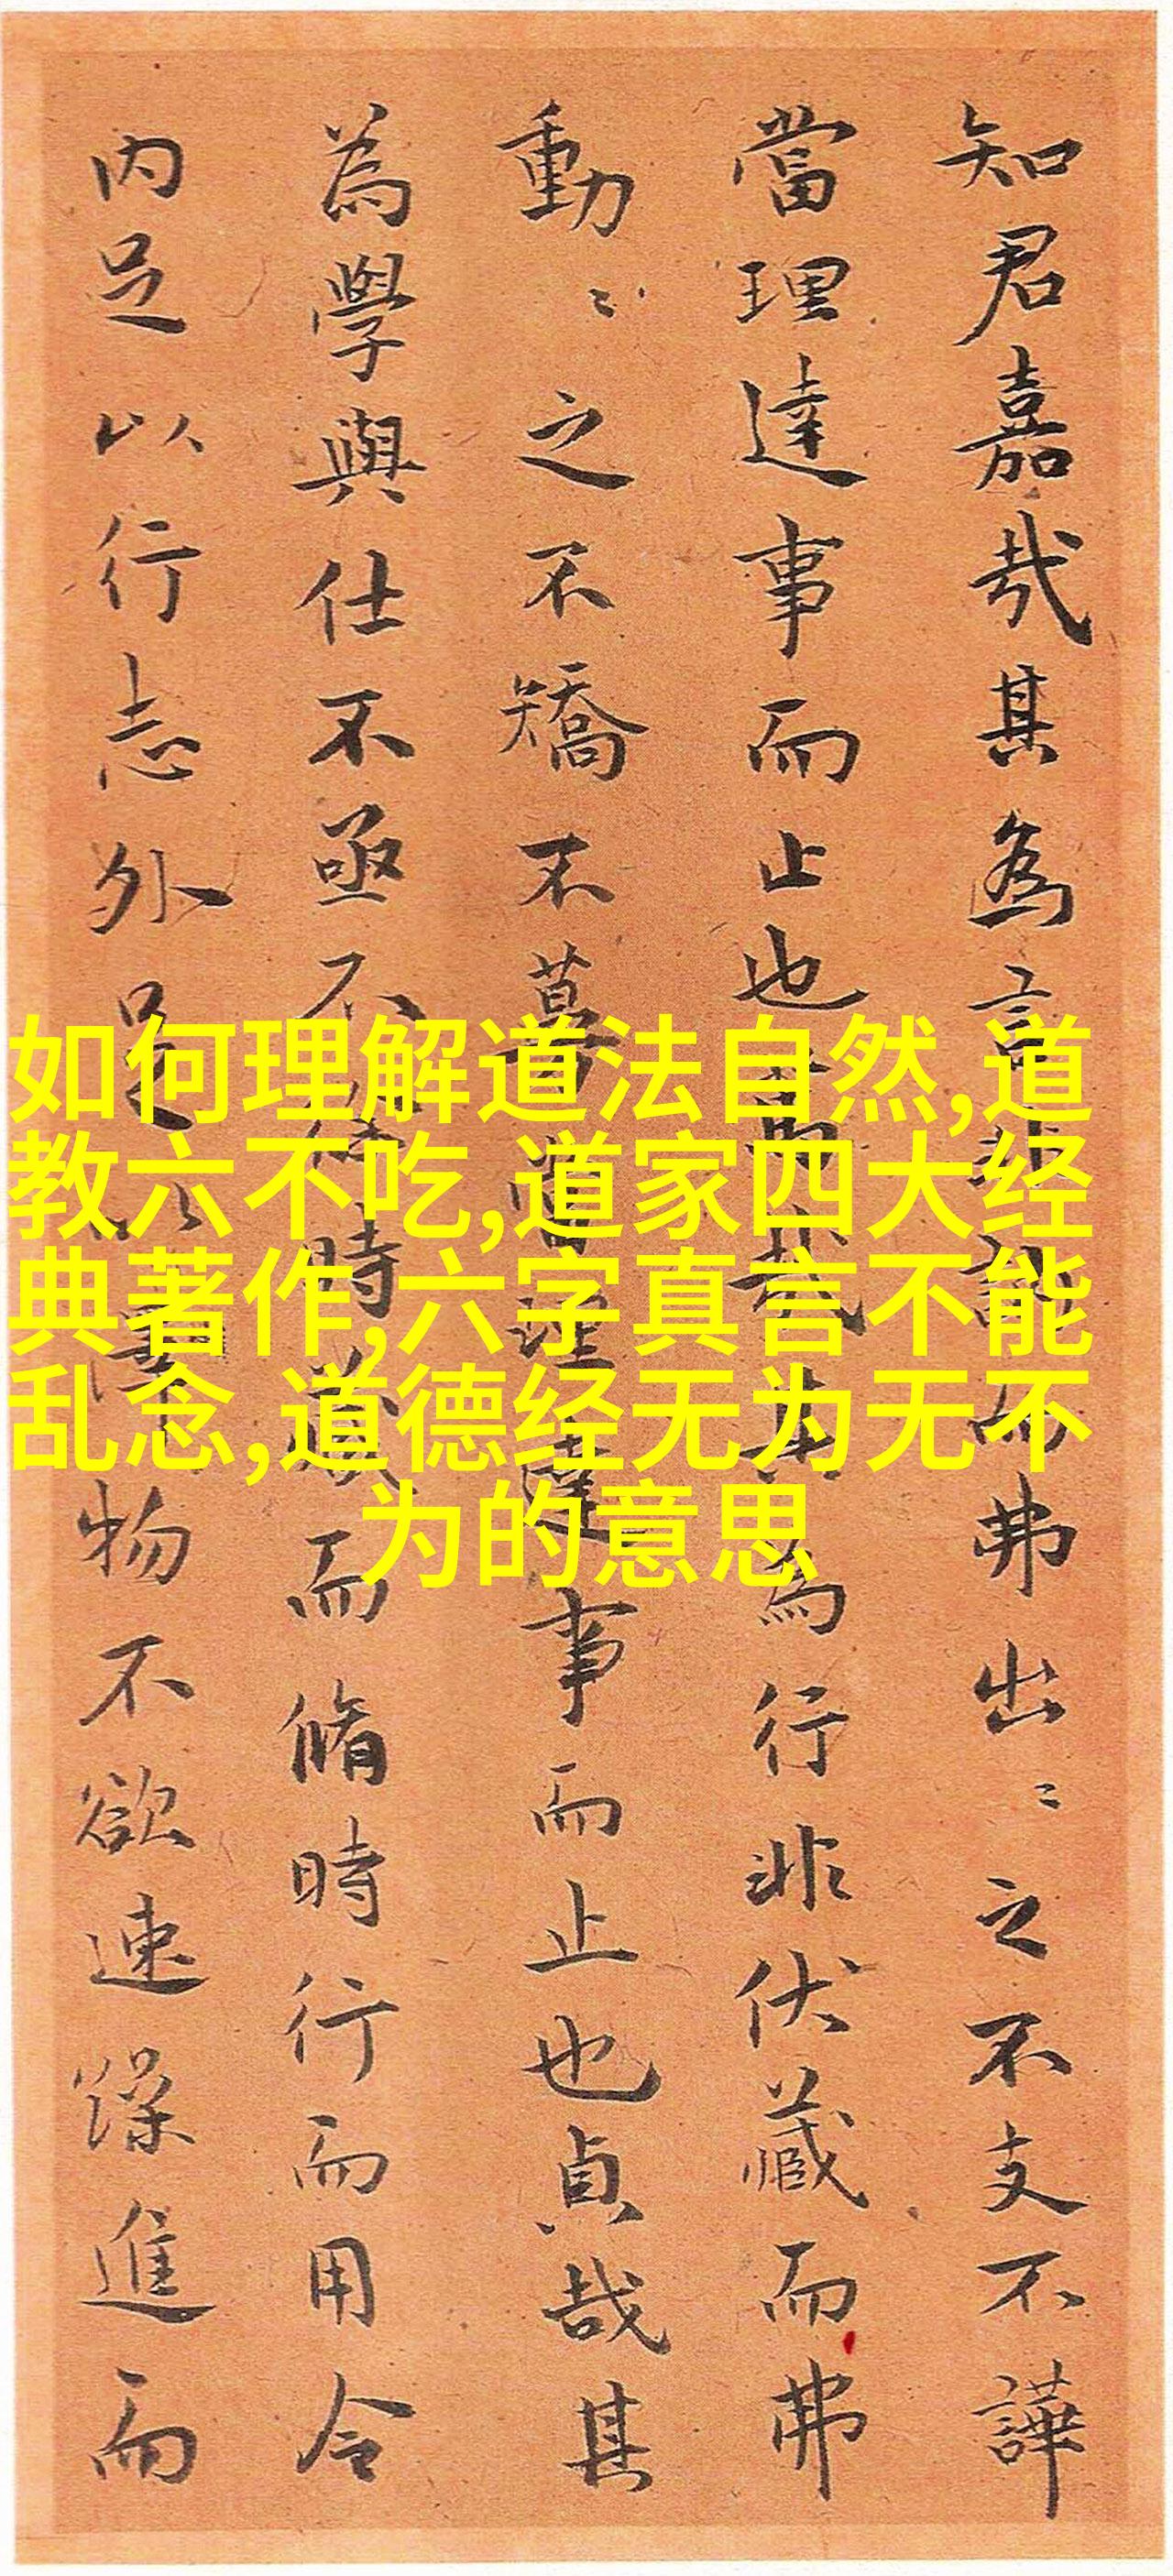 知君嘉哉其為言非訥而弗出〻之不支不譁
當理達事而止也高哉其為行非伏藏而弗
動〻之不矯不募當理達事而止也貞哉其
為學與仕不亟不時藏而脩時行而用令
內足以行志外足以澤物不欲速躁進而
如何理解道法自然,道
教六不吃,道家四大经
典著作,六字真言不能
乱念,道德经无为无不
为的意思